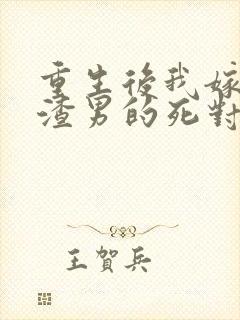 重生後我嫁
渣男的死對
王賀兵